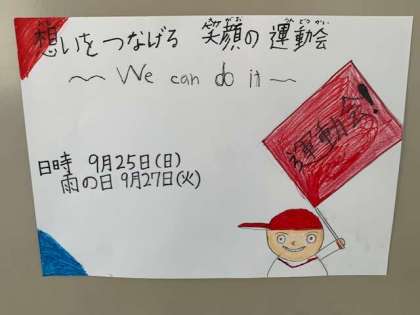 想いをつなげる 笑顔の 運動会
～ We can do it ～
運動会!
日時 9月25日(日)
雨の日 9月27日(火)